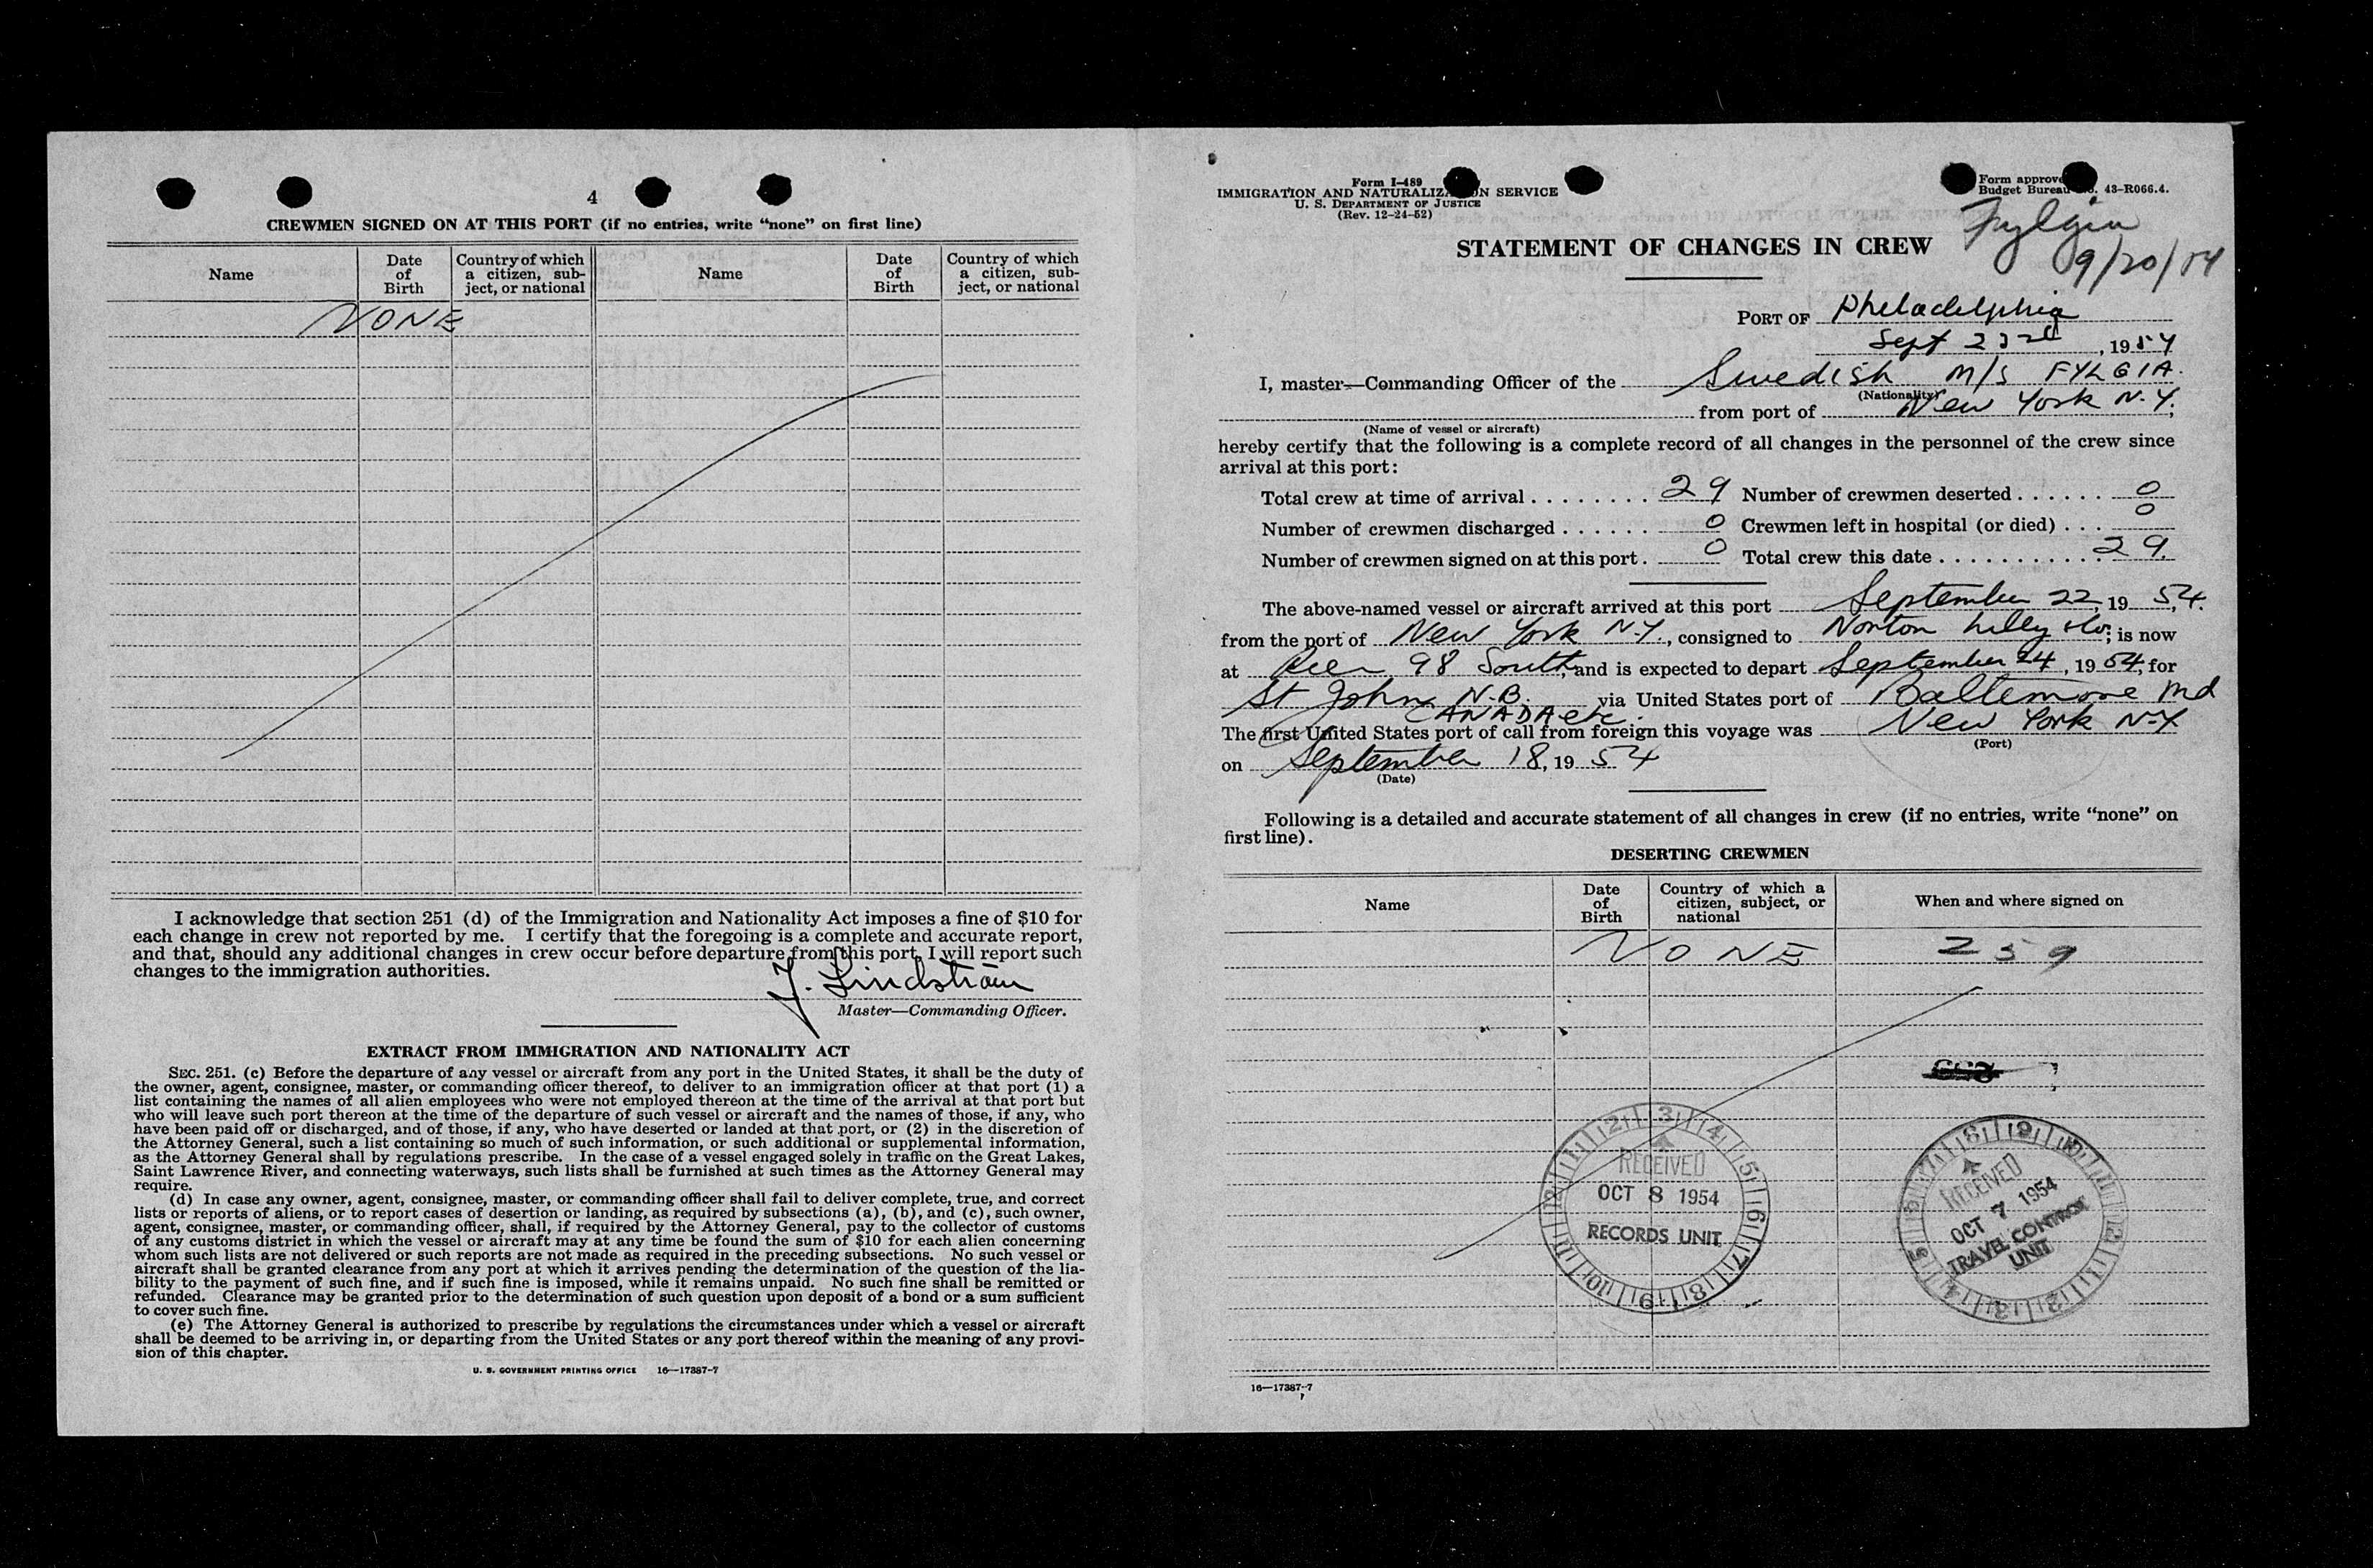 4
CREWMEN SIGNED ON AT THIS PORT (if no entries, write “none” on first line)
Name
Date of Birth
Country of which a citizen, sub-ject, or national
Name
Date of Birth
Country of which a citizen, sub-ject, or national
NONE
I acknowledge that section 251 (d) of the Immigration and Nationality Act imposes a fine of $10 for
each change in crew not reported by me. I certify that the foregoing is a complete and accurate report,
and that, should any additional changes in crew occur before departure from this port, I will report such
changes to the immigration authorities.
J. Lindström
Master—Commanding Officer.
EXTRACT FROM IMMIGRATION AND NATIONALITY ACT
SEC. 251. (c) Before the departure of any vessel or aircraft from any port in the United States, it shall be the duty of
the owner, agent, consignee, master, or commanding officer thereof, to deliver to an immigration officer at that port (1) a
list containing the names of all alien employees who were not employed thereon at the time of the arrival at that port but
who will leave such port thereon at the time of the departure of such vessel or aircraft and the names of those, if any, who
have been paid off or discharged, and of those, if any, who have deserted or landed at that port, or (2) in the discretion of
the Attorney General, such a list containing so much of such information, or such additional or supplemental information,
as the Attorney General shall by regulations prescribe. In the case of a vessel engaged solely in traffic on the Great Lakes,
Saint Lawrence River, and connecting waterways, such lists shall be furnished at such times as the Attorney General may
require.
(d) In case any owner, agent, consignee, master, or commanding officer shall fail to deliver complete, true, and correct
lists or reports of aliens, or to report cases of desertion or landing, as required by subsections (a), (b), and (c), such owner,
agent, consignee, master, or commanding officer, shall, if required by the Attorney General, pay to the collector of customs
of any customs district in which the vessel or aircraft may at any time be found the sum of $10 for each alien concerning
whom such lists are not delivered or such reports are not made as required in the preceding subsections. No such vessel or
aircraft shall be granted clearance from any port at which it arrives pending the determination of the question of the lia-
bility to the payment of such fine, and if such fine is imposed, while it remains unpaid. No such fine shall be remitted or
refunded. Clearance may be granted prior to the determination of such question upon deposit of a bond or a sum sufficient
to cover such fine.
(e) The Attorney General is authorized to prescribe by regulations the circumstances under which a vessel or aircraft
shall be deemed to be arriving in, or departing from the United States or any port thereof within the meaning of any provi-
sion of this chapter.
U. S. GOVERNMENT PRINTING OFFICE 16—17387-7
Form I-489
IMMIGRATION AND NATURALIZATION SERVICE
U. S. DEPARTMENT OF JUSTICE
(Rev. 12-24-52)
Form approve
Budget Bureau 43-R066.4.
Fylgia
9/20/54
STATEMENT OF CHANGES IN CREW
PORT OF Philadelphia
Sept 22nd, 1954
I, master—Commanding Officer of the Swedish M/S FYLGIA.
(Nationality)
from port of New York N.Y.,
(Name of vessel or aircraft)
hereby certify that the following is a complete record of all changes in the personnel of the crew since
arrival at this port:
Total crew at time of arrival . . . . . . . . 29 Number of crewmen deserted . . . . . . 0
Number of crewmen discharged . . . . . . 0 Crewmen left in hospital (or died) . . . 0
Number of crewmen signed on at this port . 0 Total crew this date . . . . . . . . . . . 29.
The above-named vessel or aircraft arrived at this port September 22, 19 54.
from the port of New York N.Y., consigned to Norton Lilly & Co; is now
at Pier 98 South, and is expected to depart September 24, 19 54, for
St John N.B. via United States port of Baltemore Md
CANADA etc.
The first United States port of call from foreign this voyage was New York N.Y
(Port)
on September 18, 19 54
(Date)
Following is a detailed and accurate statement of all changes in crew (if no entries, write “none” on
first line).
DESERTING CREWMEN
Name
Date of Birth
Country of which a citizen, subject, or national
When and where signed on
NONE
259
RECEIVED
OCT 8 1954
RECORDS UNIT
RECEIVED
OCT 7 1954
TRAVEL CONTROL
UNIT
16—17387-7